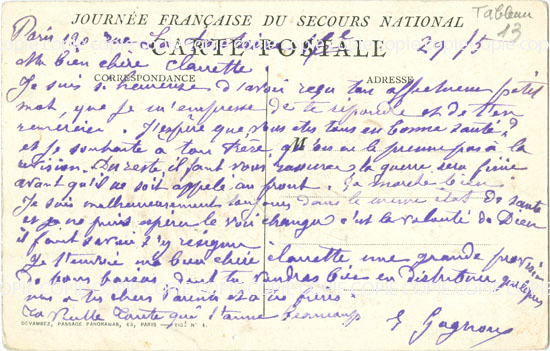 Tableau
13
JOURNÉE FRANÇAISE DU SECOURS NATIONAL
Paris 190 rue 2/15
CARTE POSTALE
Ma bien chère Clairette
CORRESPONDANCE
ADRESSE
Je suis si heureuse d'avoir reçu ton affectueux petit
mot, que je m'empresse de te répondre et de t'en
remercier. J'espère que vous êtes tous en bonne santé,
et je souhaite à ton frère qu'on ne le prenne pas à la
révision. Du reste, il faut vous rassurer la guerre sera finie
avant qu'il ne soit appelé au front. Ça marche bien.
Je suis malheureusement toujours dans le même état de santé
et je ne puis espérer le voir changer c'est la volonté de Dieu
il faut savoir s'y résigner
Je t'envoie ma bien chère Clairette une grande provision
de bons baisers dont tu voudras bien en distribuer quelques
uns à tes chers Parents et à ce frère.
Ta vieille Tante qui t'aime beaucoup
E Gagnon
DEVAMBEZ, PASSAGE PANORAMAS, 63, PARIS N° 4.